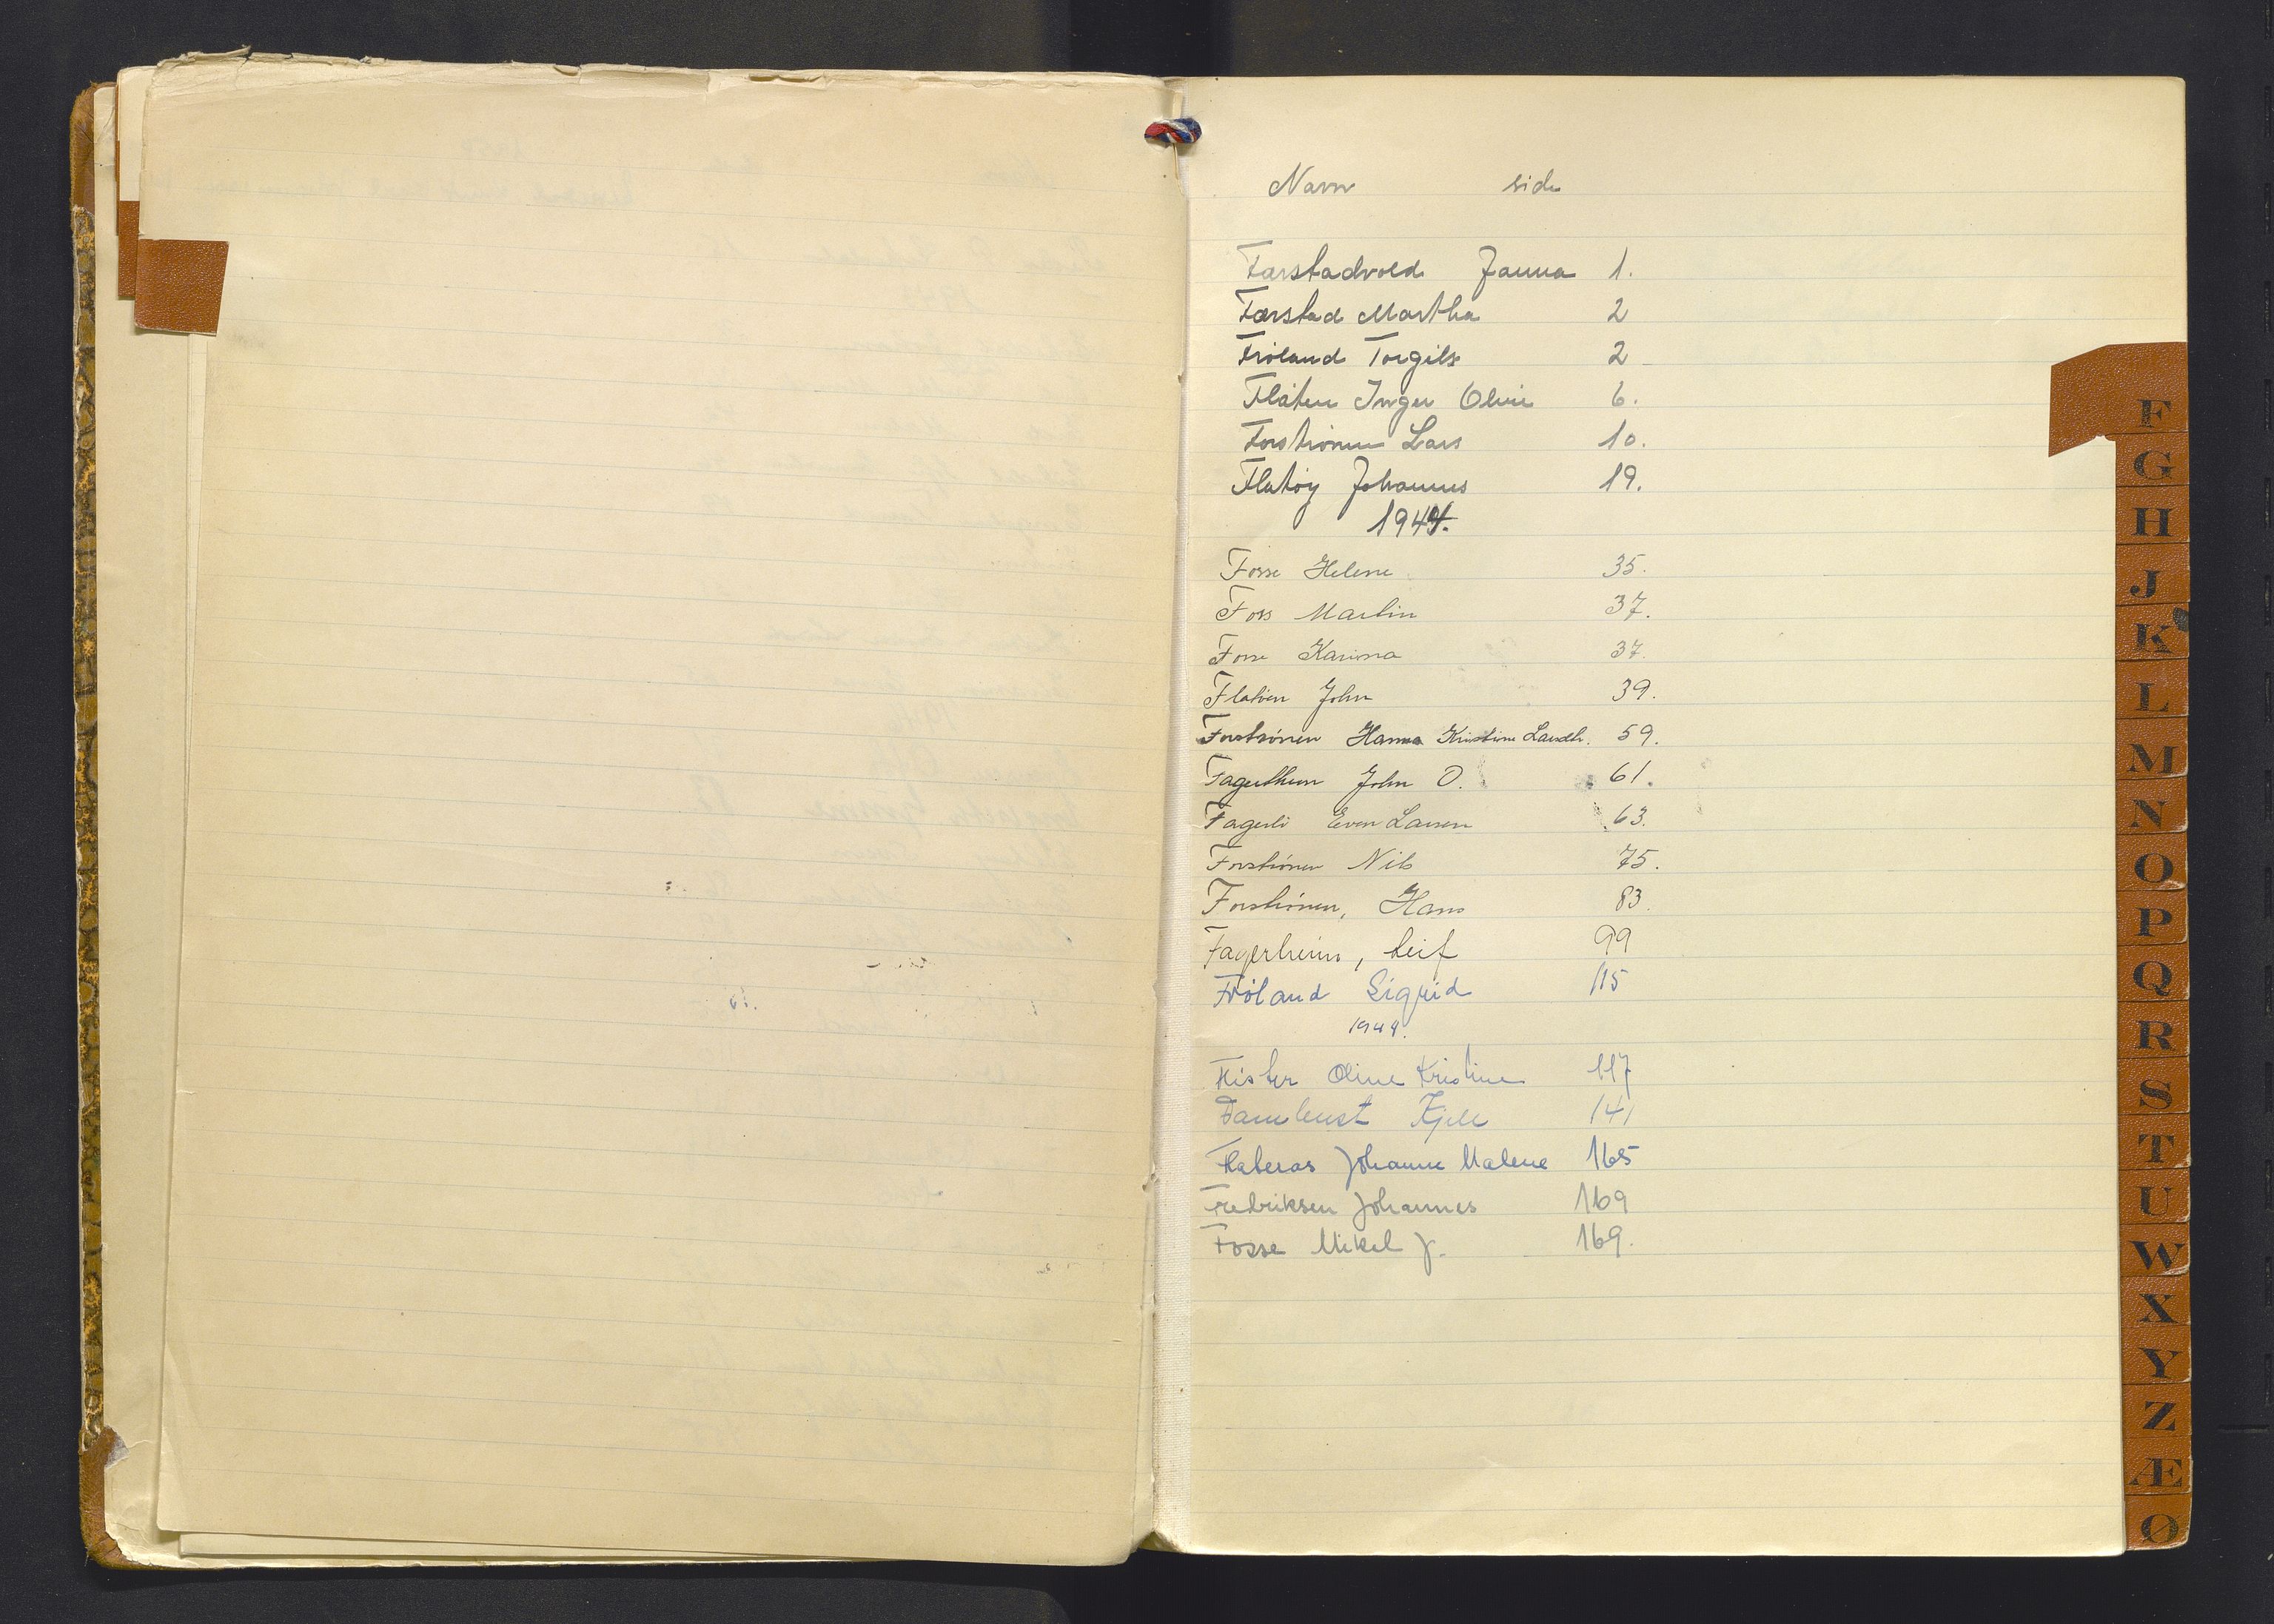 Navn side
Farstadvold Janna 1.
Farstad Martha 2
Fröland Torgils 2
Flåten Inger Oline 6.
Forströnen Lars 10.
Flatöy Johannes 19.
1944.
Fosse Helene 35.
Foss Martin 37.
Fosse Karina 37.
Flatien John 39.
Forströnen Hanna Kristine Larsdtr. 59.
John O. 61.
Fagerli Even Larsen 63.
Forströnen Nils 75.
Forströnen, Hans 83.
Fagerheim, Leif 99
Fröland Sigrid 115
1948.
Flister Oline Kristine 117
Farnbust Kjell 141
Flaterås Johanne Malene 165
Fredriksen Johannes 169
Fosse Mikal J. 169.
F
G
H
J
K
L
M
N
O
P
Q
R
S
T
U
W
X
Y
Z
Æ
Ø